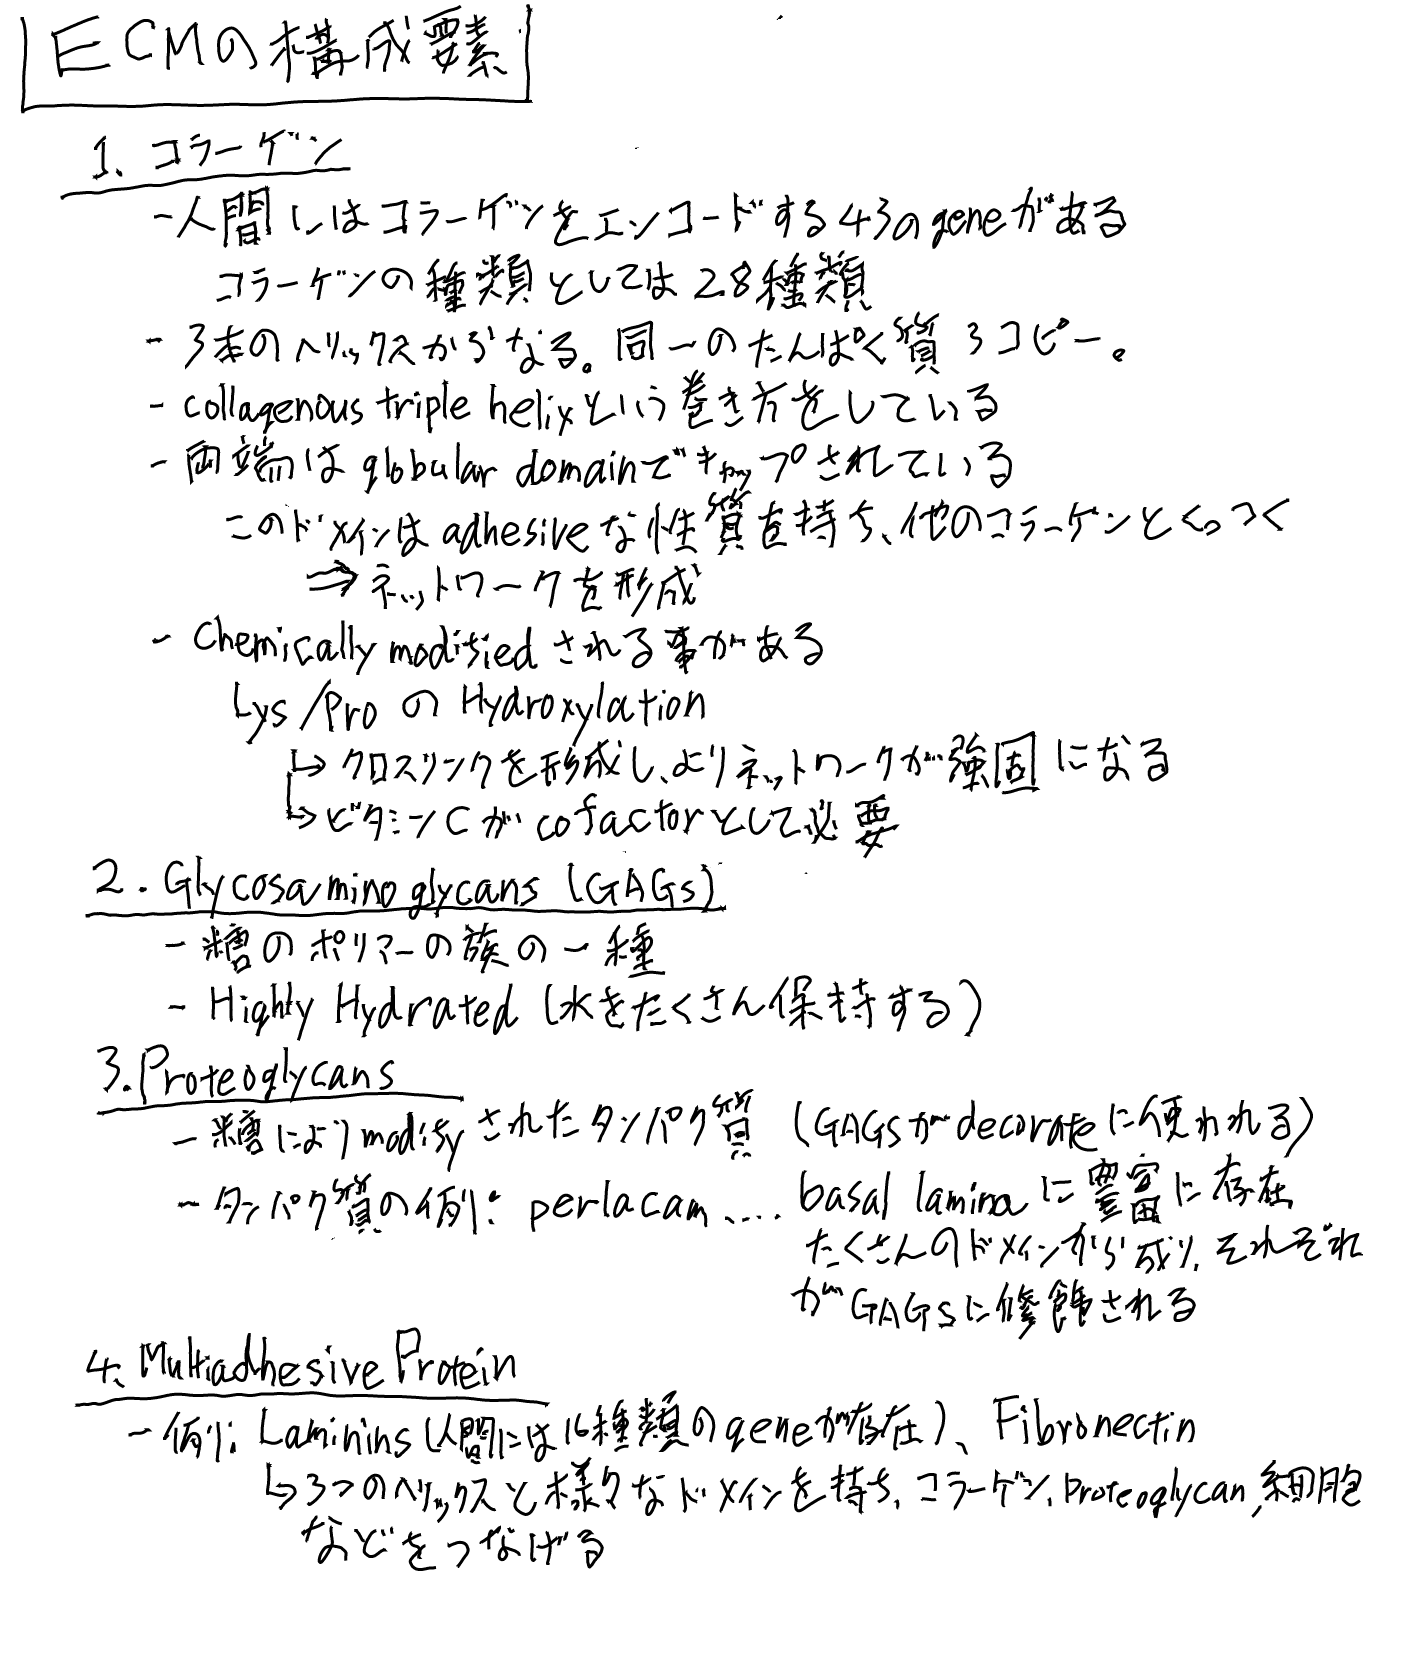 ECMの構成要素
1. コラーゲン
- 人間にはコラーゲンをエンコードする43のgeneがある
コラーゲンの種類としては28種類
- 3本のヘリックスからなる。同一のたんぱく質3コピー。
- collagenous triple helixという巻き方をしている
- 両端はglobular domainでキャップされている
このドメインはadhesiveな性質を持ち、他のコラーゲンとくっつく
⇒ネットワークを形成
- Chemically modifiedされる事がある
Lys/ProのHydroxylation
↳クロスリンクを形成し、よりネットワークが強固になる
↳ビタミンCがcofactorとして必要
2. Glycosaminoglycans (GAGs)
- 糖のポリマーの族の一種
- Highly Hydrated (水をたくさん保持する)
3. Proteoglycans
- 糖によりmodifyされたタンパク質 (GAGsがdecorateに使われる)
- タンパク質の例: perlacam .... basal laminaに豊富に存在
たくさんのドメインから成り、それぞれ
がGAGsに修飾される
4. Multiadhesive Protein
- 例: Laminins (人間には16種類のgeneが存在)、Fibronectin
↳3つのヘリックスと様々なドメインを持ち、コラーゲン、Proteoglycan、細胞
などをつなげる